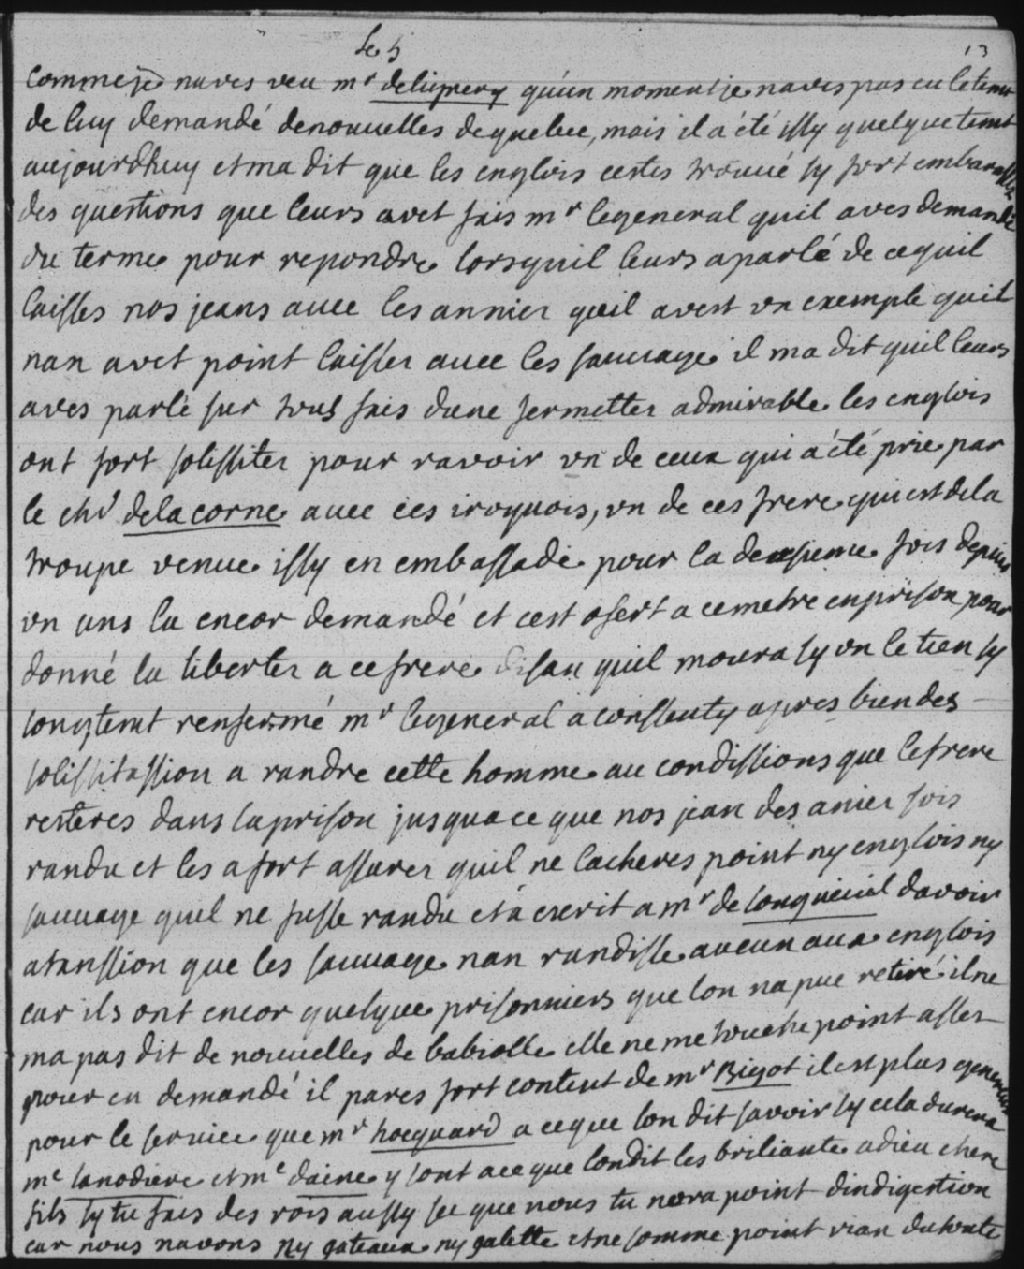 Le 5
13
Commeje naves veu mr delignery qu'un moment je naves pas eu letems
de luy demandé denouuelles dequebec, mais il a été issy quelque tems
aujourdhuy et ma dit que les englois cestes trouué sy fort embarassé
des questions que leurs avet fais mr legeneral quil aves demandé
du terme pour repondre lorsquil leurs aparlé de cequil
laisses nos jeans auec les annier quil avest vn exemple quil
nan avet point laisser auec les sauuage il ma dit quil leurs
aves parlé sur tous sais dune fermetter admirable les englois
ont fort solissiter pour ravoir vn de ceux qui a été prie par
le chr delacorne auec ces iroquois, vn de ces frere qui est dela
troupe venue issy en embassade pour la deusieme fois depuis
vn ans la encor demandé et cest ofert a cemetre enprison pour
donné la liberter a cefrere disan quil moura sy on le tien sy
longtemt renfermé mr legeneral a conssenty apres bien des
solissitassion a randre cette homme au condissions que lefrere
resteres dans laprison jusquace que nos jean des anier sois
randu et les a fort assurer quil ne lacheres point ny englois ny
sauuage quil ne fusse randu et a escrit a mr de longueuil davoir
atanssion que les sauuage nan randisse aucun aux englois
car ils ont encor quelque prisonniers que lon na pue retiré il ne
ma pas dit de nouuelles de babiolle elle ne me touche point asses
pour en demandé il pares fort content de mr Bigot il est plus genereux
pour le seruice que mr hocquard a ceque lon dit savoir sy cela durera
me lanodiere et me daine y sont a ce que londit les briliante adieu chere
fils sy tu fais des rois aussy sec que nous tu nora point dindigestion
car nous navons ny gateaux ny galette et ne somme point rian dutoute